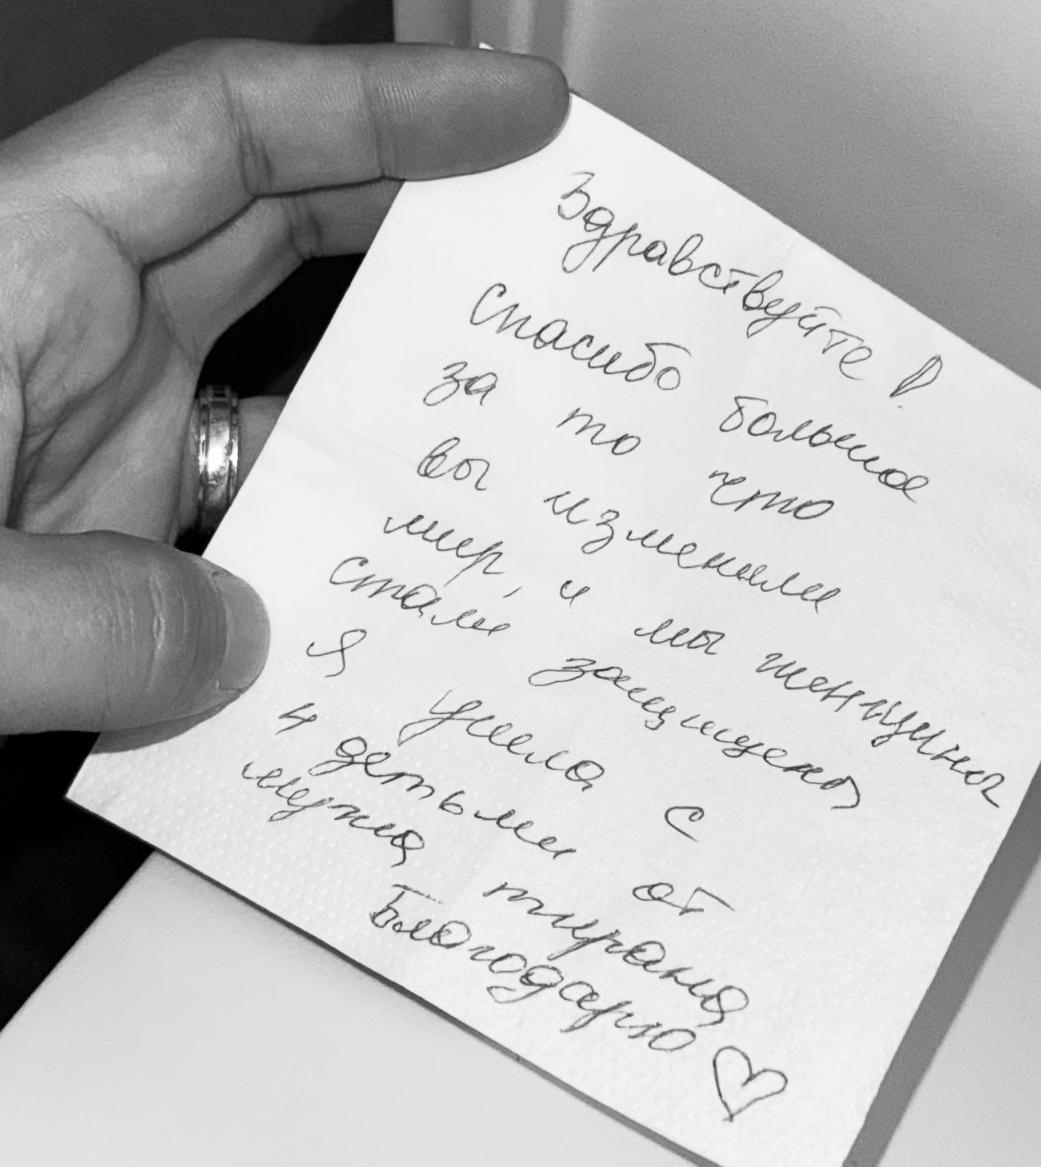 Здравствуйте!
Спасибо большое
за то что
вы изменили
мир, и мы женщины
стали защищены
Я ушла с
4 детьми от
мужа тирана
Благодарю ♡